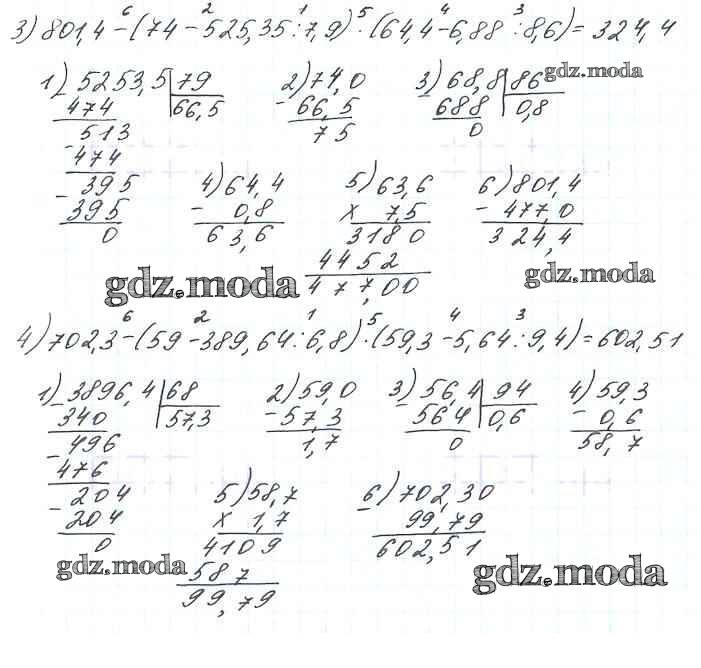 3) 801,4 - (74 - 525,35 : 7,9) · (64,4 - 6,88 : 8,6) = 324,4
6 2 1 5 4 3
1) 5253,5 | 79 2) 74,0 3) 68,8 | 86 gdz.moda
474 | 66,5 - 66,5 - 688 | 0,8
513 7 5 0
- 474
395 4) 64,4 5) 63,6 6) 801,4
- 395 - 0,8 x 7,5 - 477,0
0 63,6 3180 324,4
gdz.moda 4452 gdz.moda
477,00
6 2 1 5 4 3
4) 702,3 - (59 - 389,64 : 6,8) · (59,3 - 5,64 : 9,4) = 602,51
1) 3896,4 | 68 2) 59,0 3) 56,4 | 94 4) 59,3
- 340 | 57,3 - 57,3 - 564 | 0,6 - 0,6
496 1,7 0 58,7
- 476
204 5) 58,7 6) 702,30
- 204 x 1,7 - 99,79
0 4109 602,51
gdz.moda 587 gdz.moda
99,79